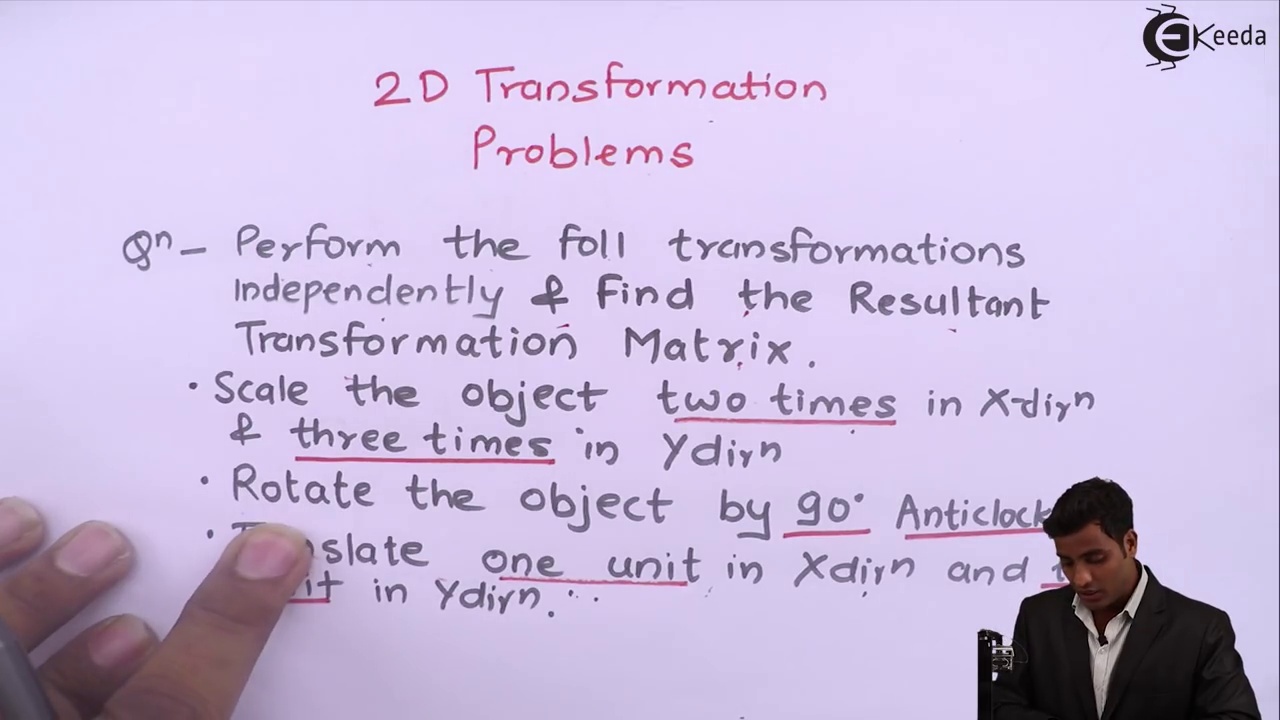 EKeeda
2D Transformation
Problems
Qⁿ - Perform the foll transformations
Independently & Find the Resultant
Transformation Matrix.
• Scale the object two times in X-dirⁿ
& three times in Ydirⁿ
• Rotate the object by 90° Anticlock
• one unit in Xdirⁿ and
in Ydirⁿ.